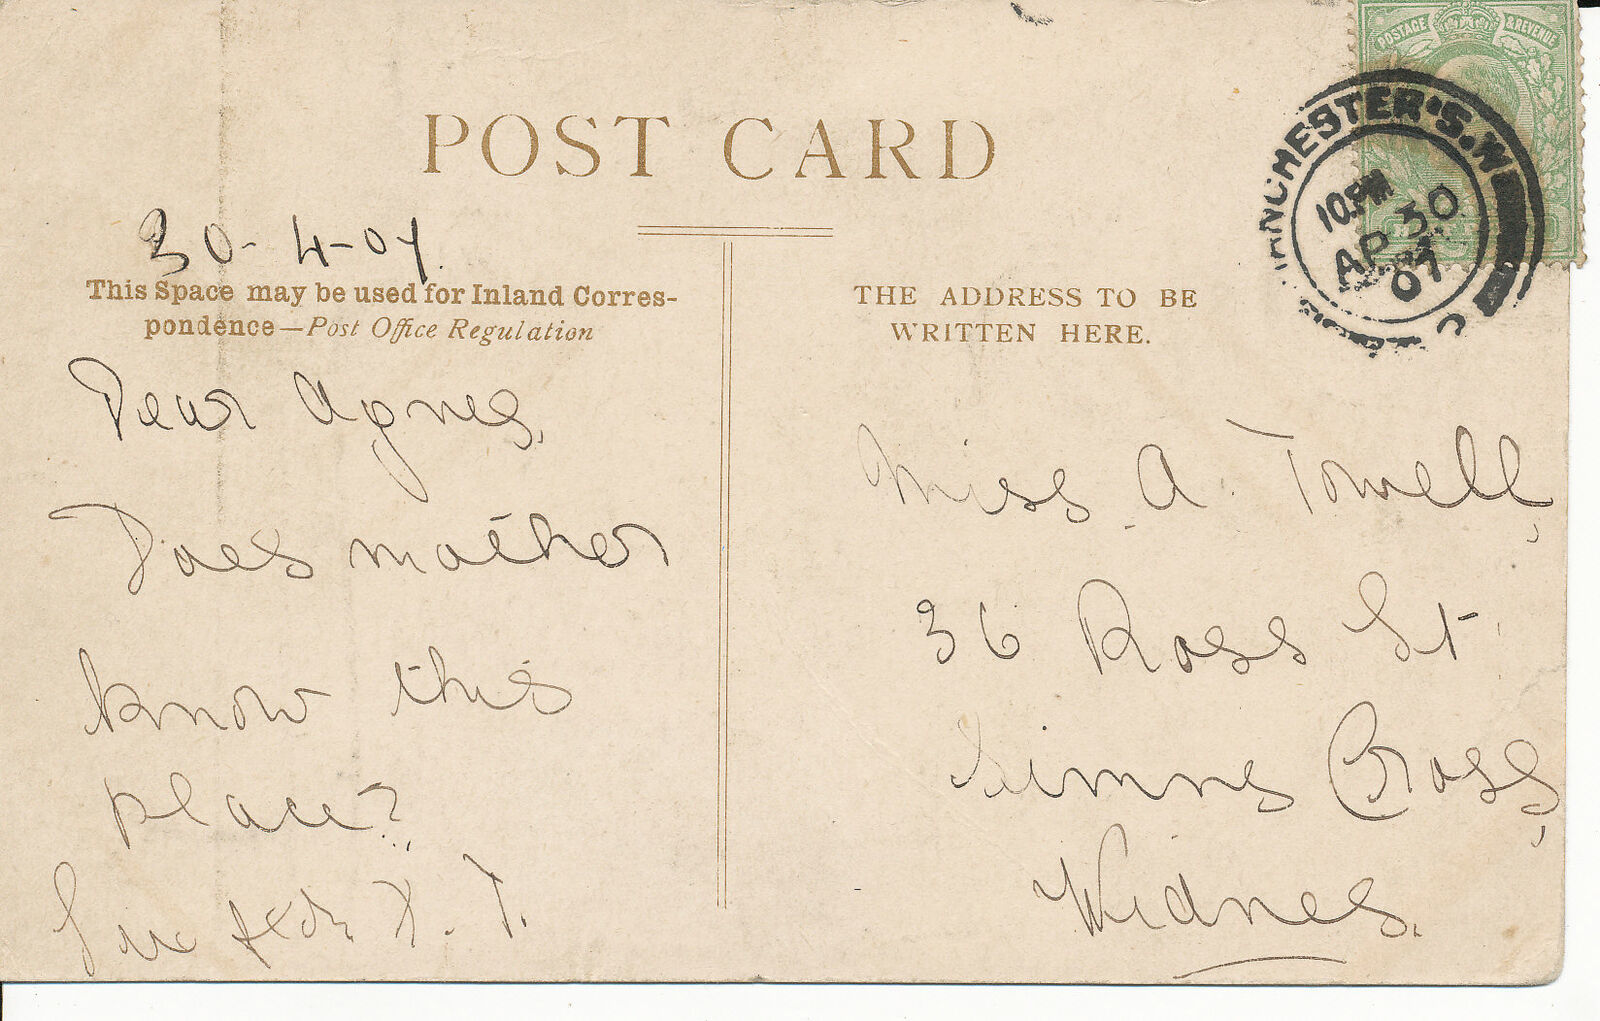 POSTAGE & REVENUE
MANCHESTER·S.W
10.PM
AP 30
07
POST CARD
30-4-07.
This Space may be used for Inland Corres-
pondence—Post Office Regulation
Dear Agnes,
Does mother
know this
place?
T.
THE ADDRESS TO BE
WRITTEN HERE.
Miss A. Towell,
36 Ross St
Simms Cross,
Widnes.